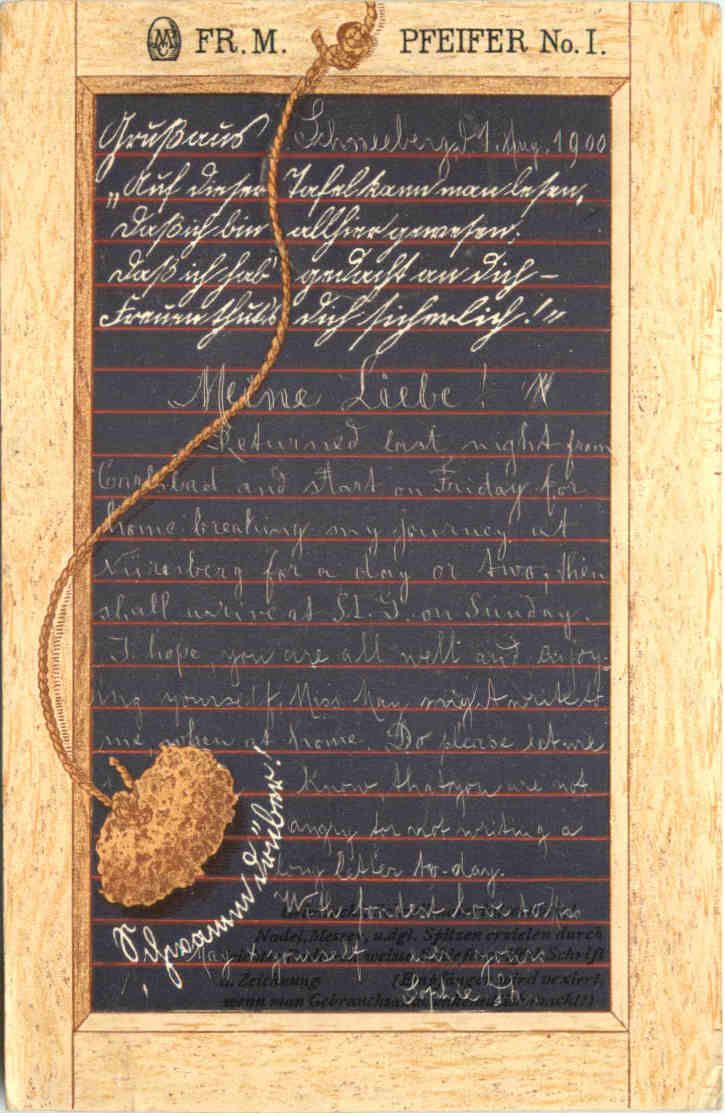 FR. M. PFEIFER No. I.
Gruß aus Schneeberg, d 1. Aug. 1900
„Auf dieser Tafel kann man lesen,
Daß ich bin allhier gewesen;
Daß ich hab' gedacht an Dich –
Freuen thut's Dich sicherlich!"
Meine Liebe!
Returned last night from
Carlsbad and start on Friday for
home breaking my journey at
Nürnberg for a day or two; then
shall arrive at St. J. on Sunday.
I hope, you are all well and enjoy-
ing yourself, Miss May might write to
me, when at home. Do please let me
know, that you are not
angry for not writing a
long letter to-day.
With fondest love to
May & yourself
Nadel, Messer, u. dgl. Spitzen erzielen durch
Schrift
u. Zeichnung (Empfänger wird vexiert,
wenn man Gebrauchsanweisung
Schwamm drüber!